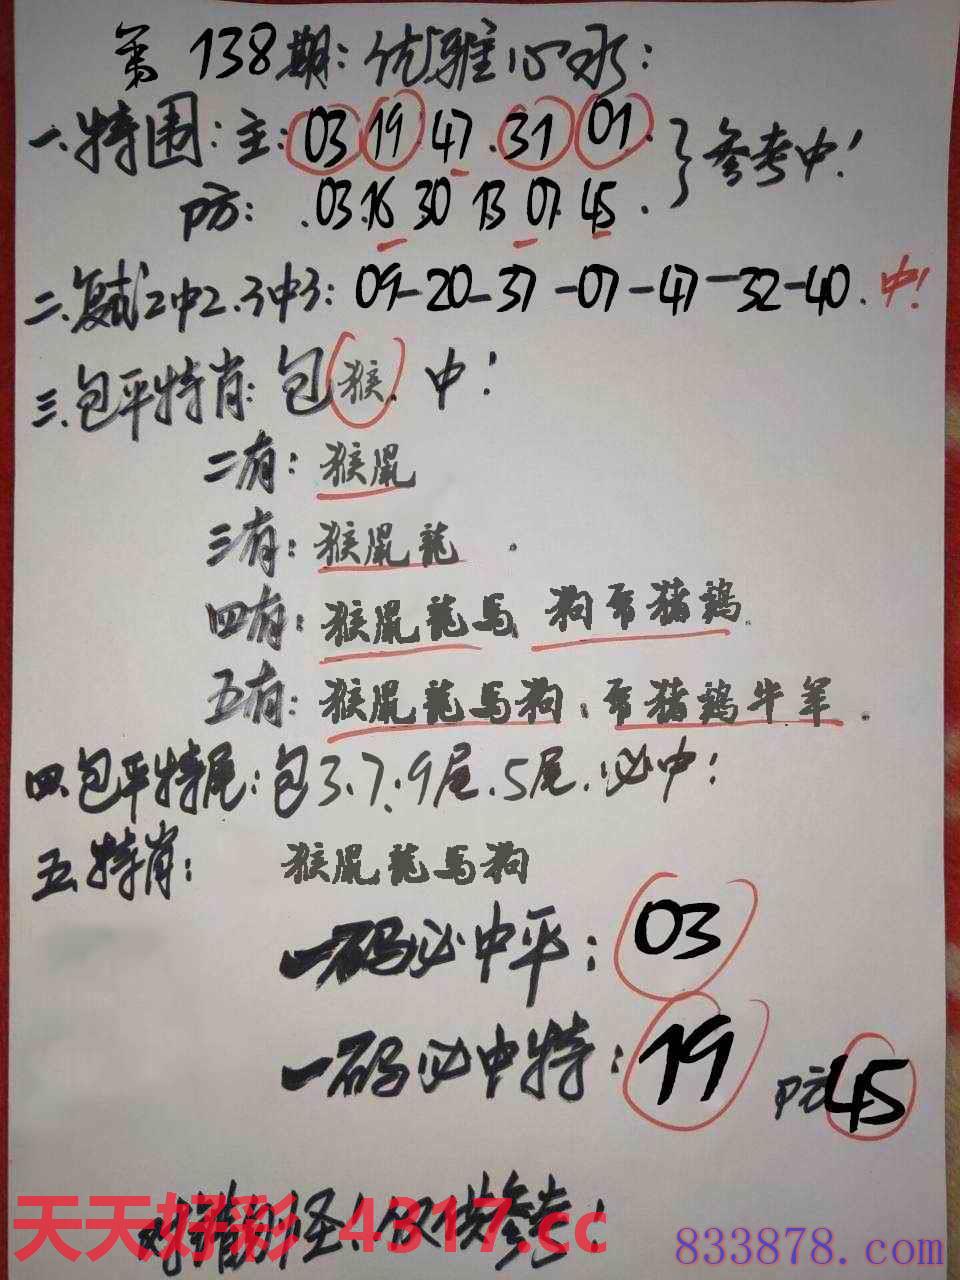 第138期:优雅心水:
一.特围:主:03 19 47.31 01.
防:.03.16 30 13 07.45.
}参考中!
二.复式2中2.3中3:09-20-37-07-47-32-40.中!
三.包平特肖:包猴.中!
二有:猴鼠
三有:猴鼠龍.
四有:猴鼠龍马.狗虎猪鸡.
五有:猴鼠龍马狗:虎猪鸡牛羊.
四.包平特尾:包3.7.9尾.5尾.必中!
五.特肖:猴鼠龍马狗
一码必中平:03
一码必中特:19 防45
对错别怪!仅供参考!
天天好彩 4317.cc
833878.com